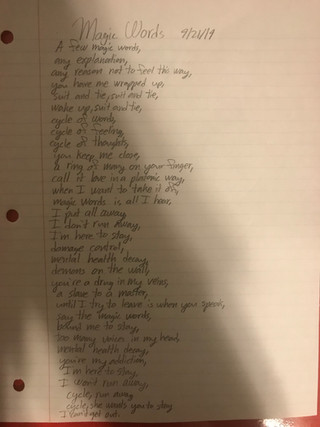 Magic Words 9/21/19
A few magic words,
any explanation,
any reason not to feel this way,
you have me wrapped up,
Suit and tie, suit and tie,
wake up, suit and tie,
cycle of words,
cycle of feeling,
cycle of thoughts,
you keep me close,
a ring of many on your finger,
call it love in a platonic way,
when I want to take it off,
magic words is all I hear,
I put all away,
I don't run away,
I'm here to stay,
damage control,
mental health decay,
demons on the wall,
you're a drug in my veins,
a slave to a master,
until I try to leave is when you speak,
say the magic words,
bound me to stay,
too many voices in my head,
mental health decay,
you're my addiction,
I'm here to stay,
I won't run away,
cycle, run away
cycle, she wants you to stay
I can't get out.